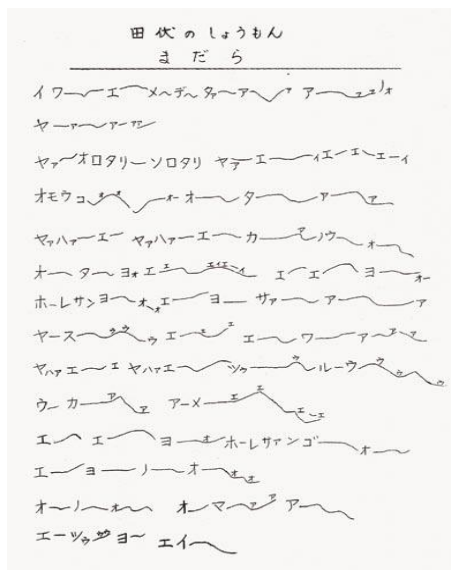 田代のしょうもん
まだら
イワーエーメーデータァーアーァ アーァェォ
ヤーァーアーァァ
ヤァーオロタリーソロタリ ヤァエーイエーエーエーイ
オモウコォォーオーオーターアーァ
ヤァハァーエー ヤァハァーエーカーァノウーォー
オーターヨォエエーエイエーイ エーエーヨーオー
ホーレサンヨーォォエーヨー サァーアーァ
ヤースーゥゥゥエーェェ エーワーアーァァ
ヤハァエーエ ヤハァエーツゥーゥールーウーゥゥゥ
ウーカーァァ アーメーエエーエーエ
エーエーヨーォホーレサァンゴーォー
エーヨーノーオーォォ
オーノーォー オーマーァァアー
エーツゥゥヨー エイー